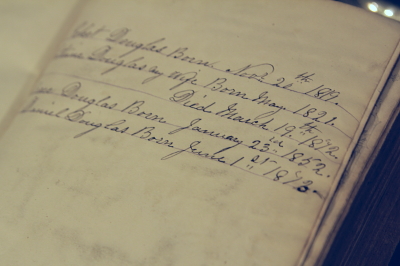 Douglas Born Nov. 20th 1819.
Douglas my Wife Born May 1821.
Died March 19th 1872.
Douglas Born January 23rd 1852.
Daniel Douglas Born June 1st 1873.